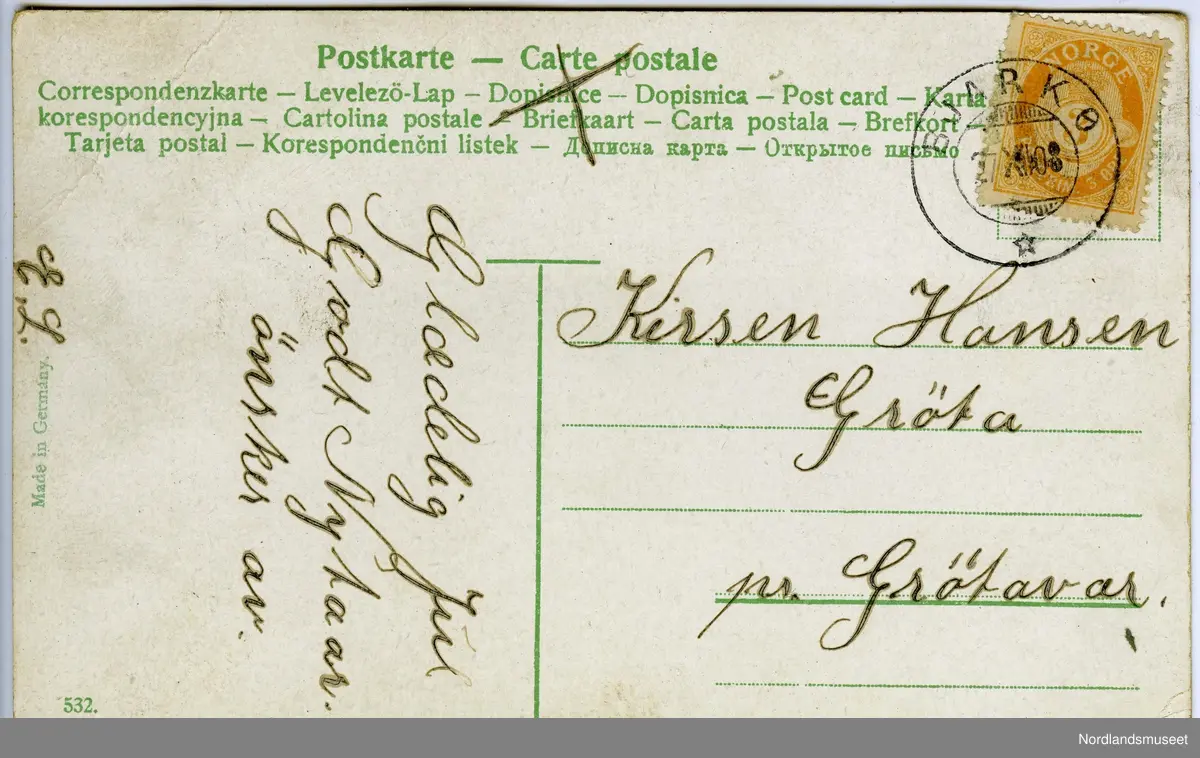 Postkarte — Carte postale
Correspondenzkarte — Levelező-Lap — Dopisnice — Dopisnica — Post card — Karta
korespondencyjna — Cartolina postale — Briefkaart — Carta postala — Brefkort —
Tarjeta postal — Korespondenčni listek — Дописна карта — Открытое письмо
NORGE
BJARKØ
XII 08
Glædelig Jul
Godt Nytaar.
önsker av.
E. L.
Made in Germany.
532.
Kirsen Hansen
Gröta
pr. Grötavær.
Nordlandsmuseet